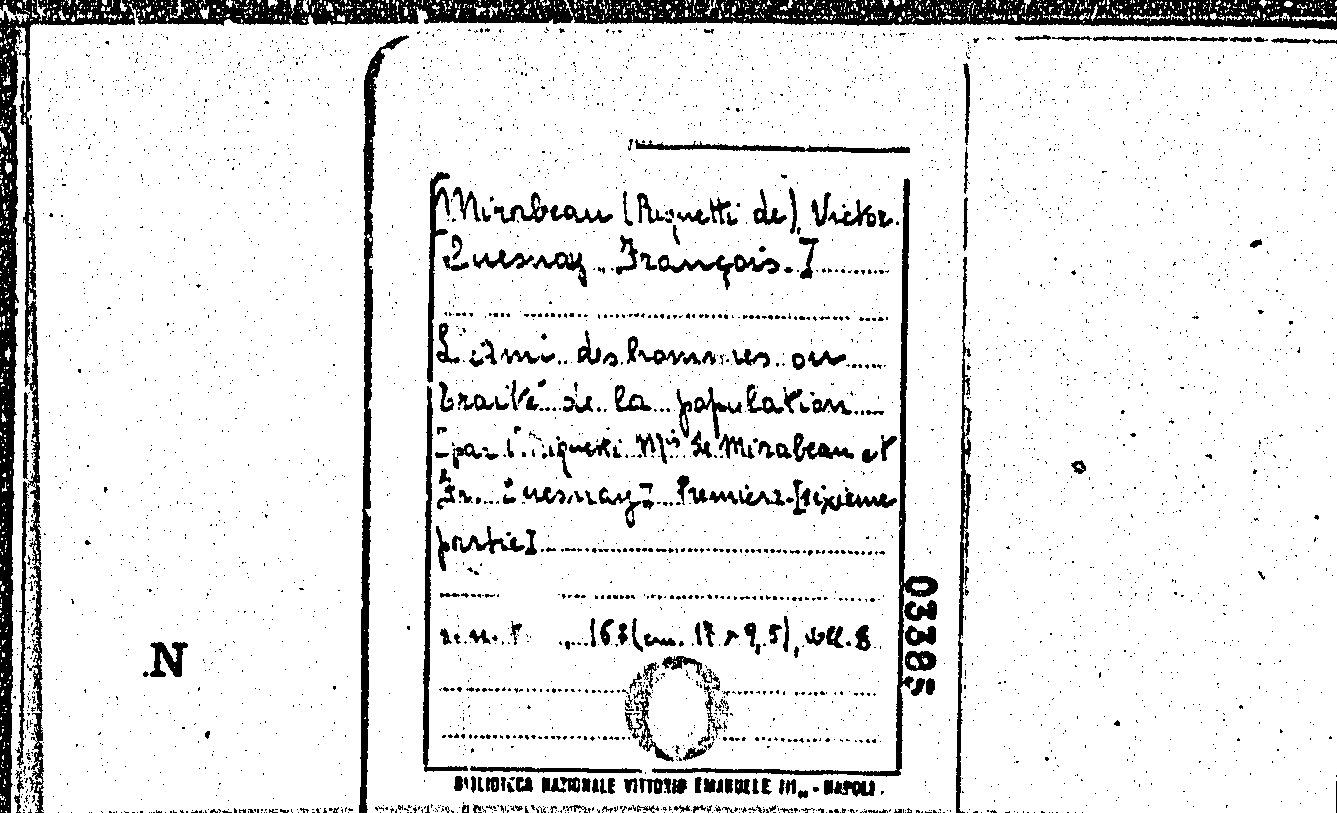 [Mirabeau (Riquetti de) Victor.
[Quesnay François.]
L'Ami des hommes ou
traité de la population
[par Riquetti M.is de Mirabeau et
Fr. Quesnay] Première-[sixième
partie]
(cm. 17 x 9,5), voll. 8
03385
N
BIBLIOTECA NAZIONALE VITTORIO EMANUELE III„ - NAPOLI.